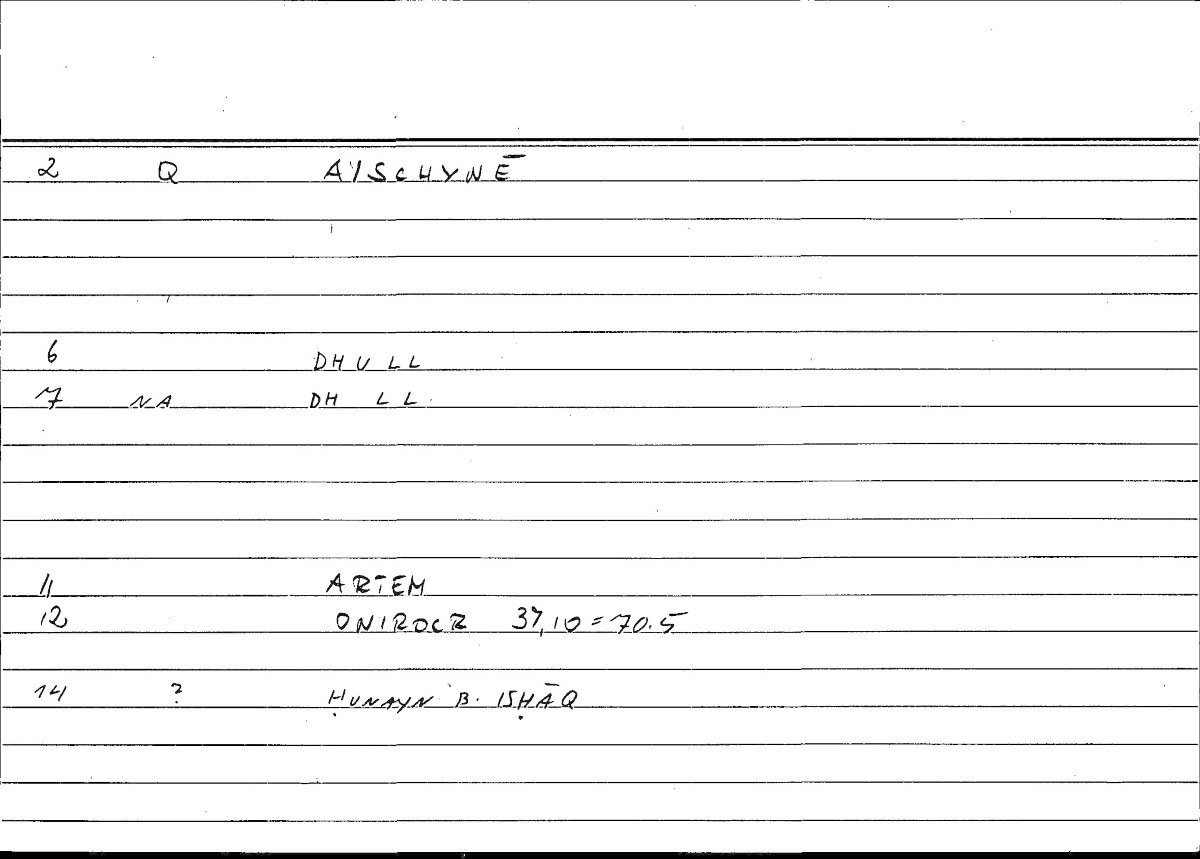 2 Q AISCHYNĒ
6 DHULL
7 NA DH LL
11 ARTEM
12 ONIROCR 37,10=70.5
14 ? ḤUNAYN B. ISḤĀQ